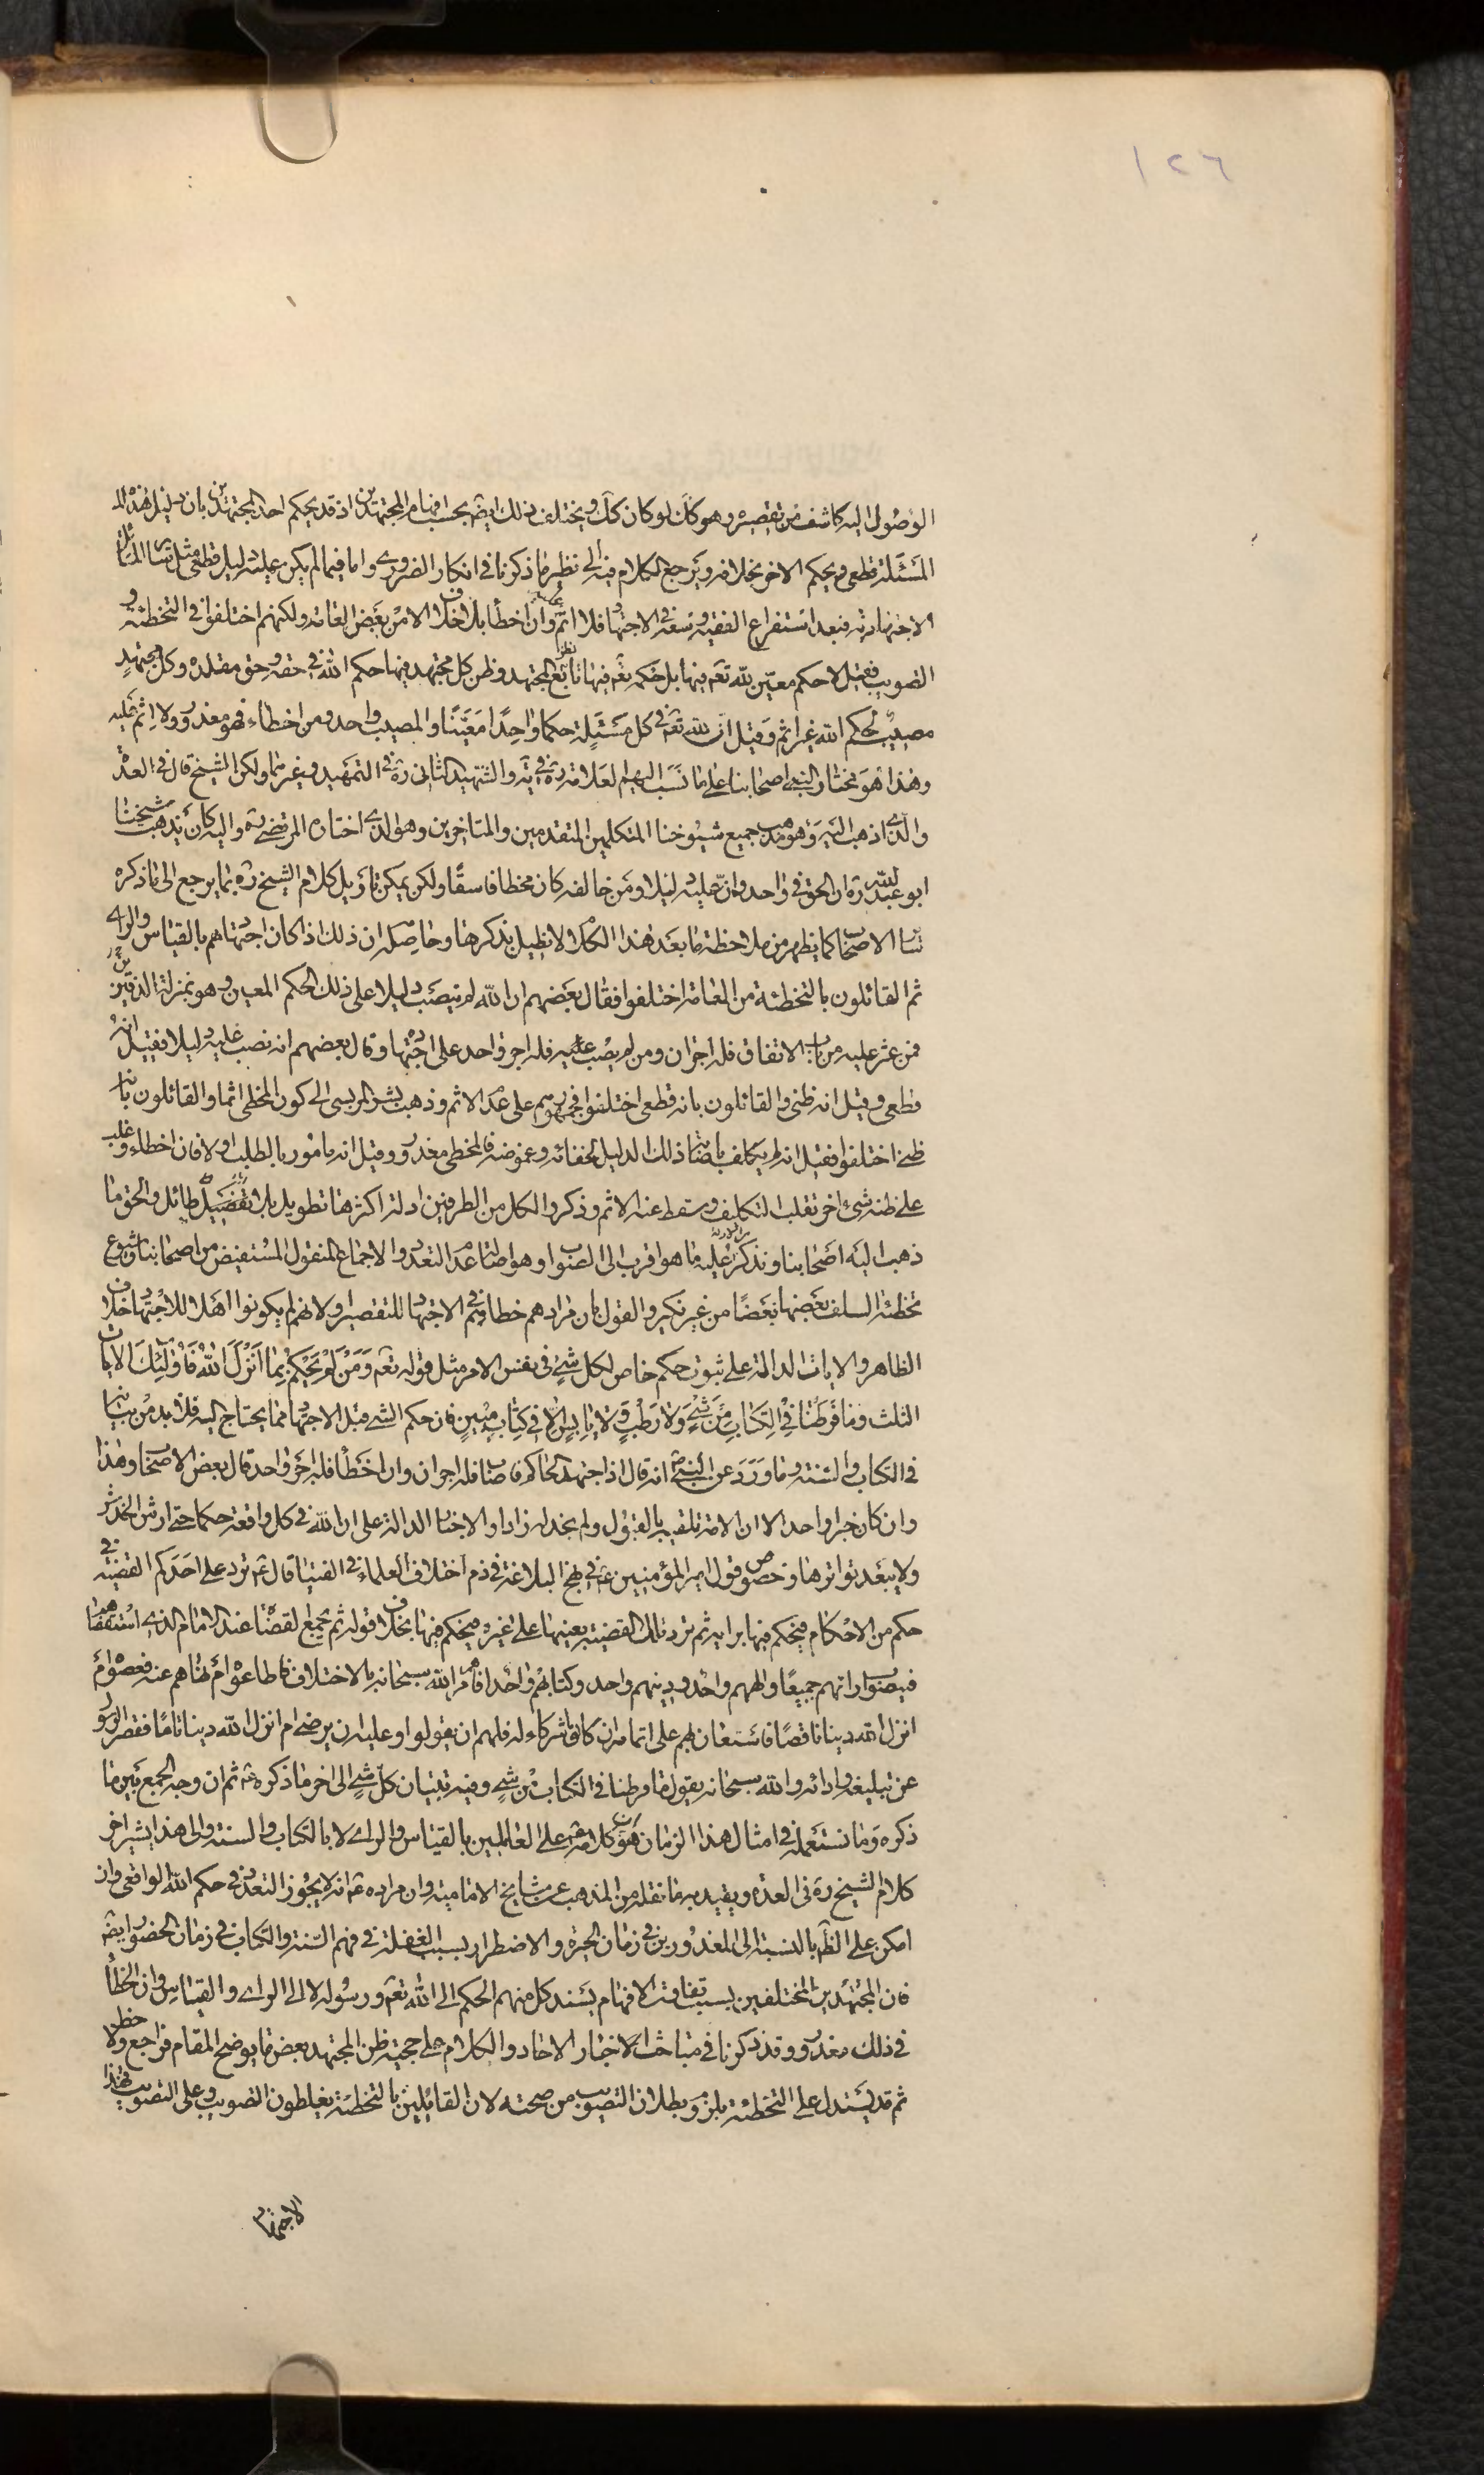 ١٢٦
الوصول اليه كاشف عن تقصيره وهو كك لو كان كك ويختلف ذلك ايضه بحسب افهام المجتهدين اذ قد يحكم احد المجتهدين بان دليل هذه
المسئلة قطعي ويحكم الاخر بخلافه ويرجع الكلام فيه الى نظير ما ذكرنا في انكار الضروري واما فيما لم يكن عليه دليل قطعي مثل سائر المسائل
الاجتهادية فبعد استفراغ الفقيه وسعه في الاجتهاد فلا اثم وان اخطا بلا خلاف الا من بعض العامه ولكنهم اختلفوا في التخطئة و
التصويب فقيل لا حكم معين لله تعه فيها بل حكمه تعه فيها تابع لنظر المجتهد وظن كل مجتهد فيها حكم الله في حقه وحق مقلده وكل مجتهد
مصيب لحكم الله غير اثم وقيل ان لله تعه في كل مسئلة حكما واحدا معينا والمصيب واحد ومن اخطاء فهو معذور ولا اثم عليه
وهذا هو مختار اصحابنا على ما نسب اليهم العلامة ره في يه والشهيد الثاني ره في التمهيد وغيرهما ولكن الشيخ قال في العدة
والذي اذهب اليه وهو مذهب جميع شيوخنا المتكلمين المتقدمين والمتاخرين وهو الذي اختاره المرتضى ره واليه كان يذهب شيخنا
ابو عبد الله ره ان الحق في واحد وان عليه دليلا ومن خالفه كان مخطا فاسقا ولكن يمكن تاويل كلام الشيخ ره بما يرجع الى ما ذكره
سائر الاصحاب كما يظهر من ملاحظة ما بعد هذا الكلام لا نطيل بذكرها وحاصله ان ذلك اذا كان اجتهادهم بالقياس والراي
ثم القائلون بالتخطئة من العامة اختلفوا فقال بعضهم ان الله لم ينصب دليلا على ذلك الحكم المعين وهو بمنزلة الدفين
فمن عثر عليه من باب الاتفاق فله اجران ومن لم يصب عليه فله اجر واحد على اجتهاده وقال بعضهم انه نصب عليه دليلا فقيل انه
قطعي وقيل انه ظني والقائلون بانه قطعي اختلفوا فجمهورهم على عدم الاثم وذهب بشر المريسي الى كون المخطي اثما والقائلون بانه
ظني اختلفوا فقيل انه لم يكلف باصابة ذلك الدليل لخفائه وغموضه فالمخطي معذور وقيل انه مامور بالطلب اولا فان اخطاء وغلب
على ظنه شيء اخر تقلب التكليف وسقط عنه الاثم وذكروا لكل من الطرفين ادلة اكثرها تطويل بلا طائل والحق ما
ذهب اليه اصحابنا ونذكر عليه ما هو اقرب الى الصواب وهو اصالة عدم التعدد والاجماع المنقول المستفيض من اصحابنا وشيوع
تخطئة السلف بعضها بعضا من غير نكير والقول بان مرادهم خطاؤهم في الاجتهاد للتقصير ولانهم لم يكونوا اهلا للاجتهاد خلاف
الظاهر والايات الدالة على ثبوت حكم خاص لكل شيء في نفس الامر مثل قوله تعه ومن لم يحكم بما انزل الله فاولئك الايات
الثلث وما فرطنا في الكتاب من شيء ولا رطب ولا يابس الا في كتاب مبين فان حكم الشيء قبل الاجتهاد مما يحتاج اليه فلا بد من بيانه
في الكتاب والسنة وما ورد عن النبي ص انه قال اذا اجتهد الحاكم فاصاب فله اجران وان اخطأ فله اجر واحد قال بعض الاصحاب وهذا
وان كان خبرا واحدا الا ان الامة تلقته بالقبول ولم نجد له رادا والاخبار الدالة على ان لله في كل واقعة حكما حتى ارش الخدش
ولا يبعد تواترها وخصوص قول امير المؤمنين ع في نهج البلاغة في ذم اختلاف العلماء في الفتيا قال ع ترد على احدكم القضية في
حكم من الاحكام فيحكم فيها برايه ثم ترد تلك القضية بعينها على غيره فيحكم فيها بخلاف قوله ثم يجمع القضاة عند الامام الذي استقضاهم
فيصوب اراءهم جميعا والههم واحد ودينهم واحد وكتابهم واحد افامرهم الله سبحانه بالاختلاف فاطاعوه ام نهاهم عنه فعصوه ام
انزل الله دينا ناقصا فاستعان بهم على اتمامه ان كانوا شركاء له فلهم ان يقولوا وعليه ان يرضى ام انزل الله دينا تاما فقصر الرسول
عن تبليغه وادائه والله سبحانه يقول ما فرطنا في الكتاب من شيء وفيه تبيان كل شيء الى اخر ما ذكره ع ثم ان وجه الجمع بين ما
ذكره وما نستعمله في امثال هذا الزمان هو ان كلامه ع على العاملين بالقياس والراي لا بالكتاب والسنة والى هذا يشير اخر
كلام الشيخ ره في العدة ويقيد به ما نقله من المذهب عن مشايخ الامامية وان مراده ع انه لا يجوز التعدد في حكم الله الواقعي وان
امكن على الظه بالنسبة الى المعذورين في زمان الحيرة والاضطرار بسبب الغفلة في فهم السنة والكتاب في زمان الحضور ايضه
فان المجتهدين المختلفين بسبب تفاوت الافهام يسند كل منهم الحكم الى الله تعه ورسوله لا الى الراي والقياس وان اخطأ
في ذلك معذور وقد ذكرنا في مباحث الاخبار الاحاد والكلام على حجية ظن المجتهد بعض ما يوضح المقام فراجع ولاحظ
ثم قد يستدل على التخطئة بلزوم بطلان التصويب من صحته لان القائلين بالتخطئة يغلطون التصويب وعلى التصويب فهذا
الاجتهاد